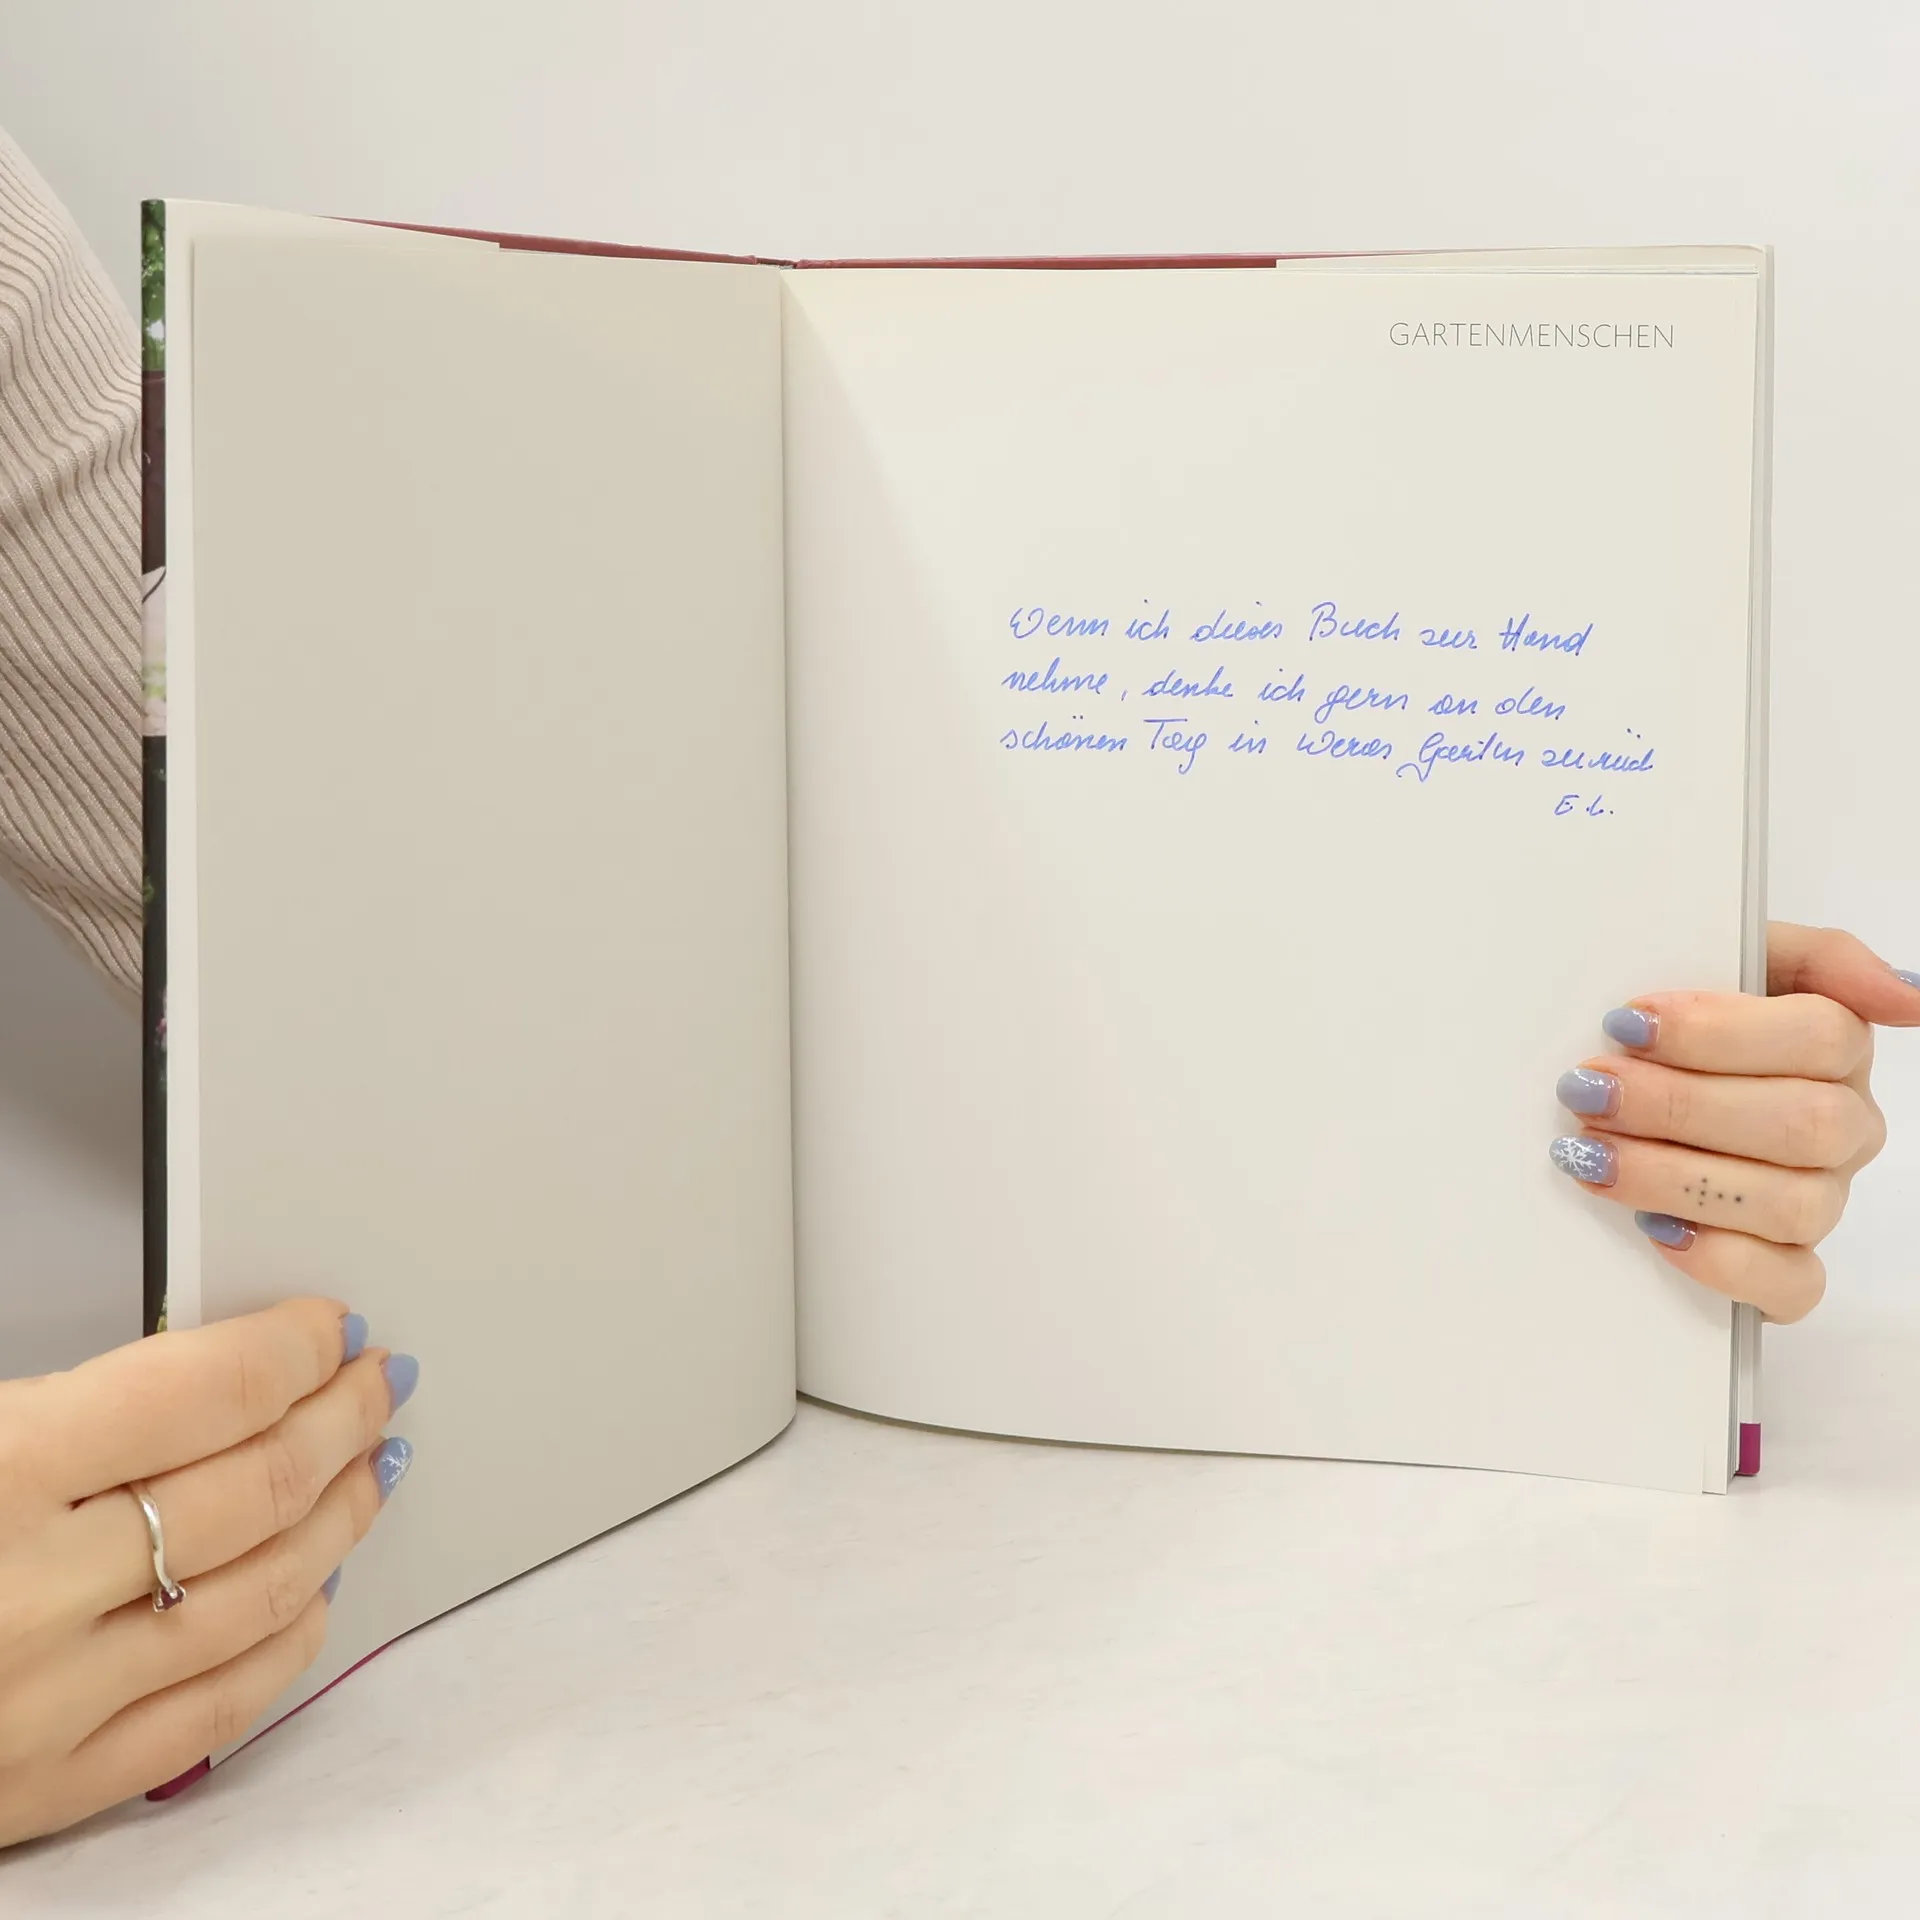 GARTENMENSCHEN
Wenn ich dieses Buch zur Hand
nehme, denke ich gern an den
schönen Tag in Weras Garten zurück
E. L.